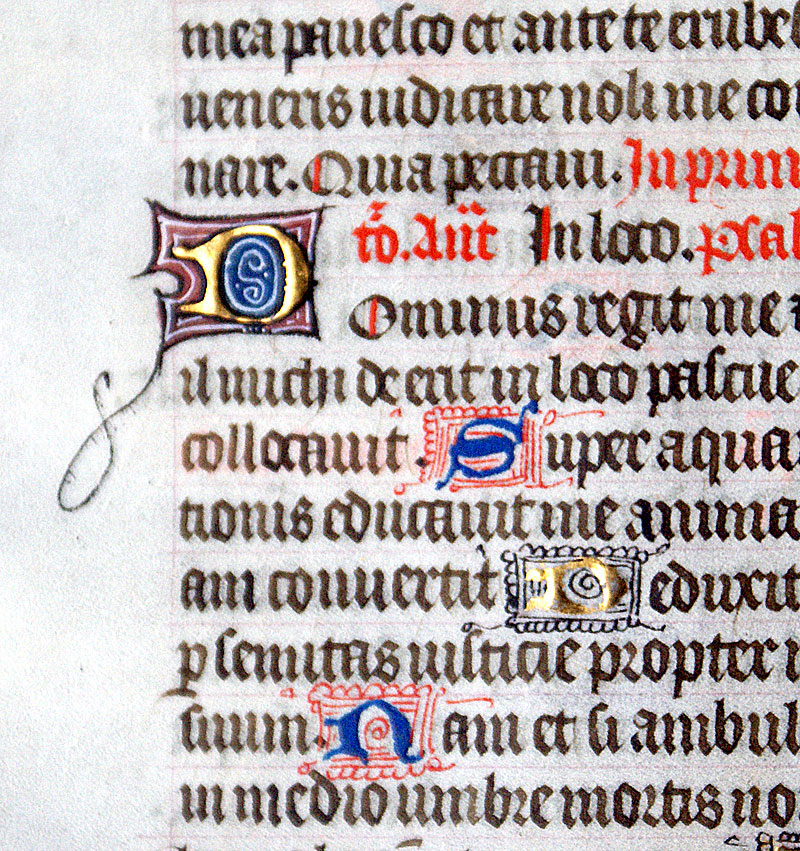 mea pauesco et ante te erubes
ueneris iudicare noli me con
nare. Quia peccaui. In primi
to. Añt In loco. psal
Dominus regit me
il michi deerit in loco pascue
collocauit. Super aqua
tionis educauit me anima
am conuertit Deduxit
p semitas iusticie propter
suum. Nam et si ambul
in medio umbre mortis no